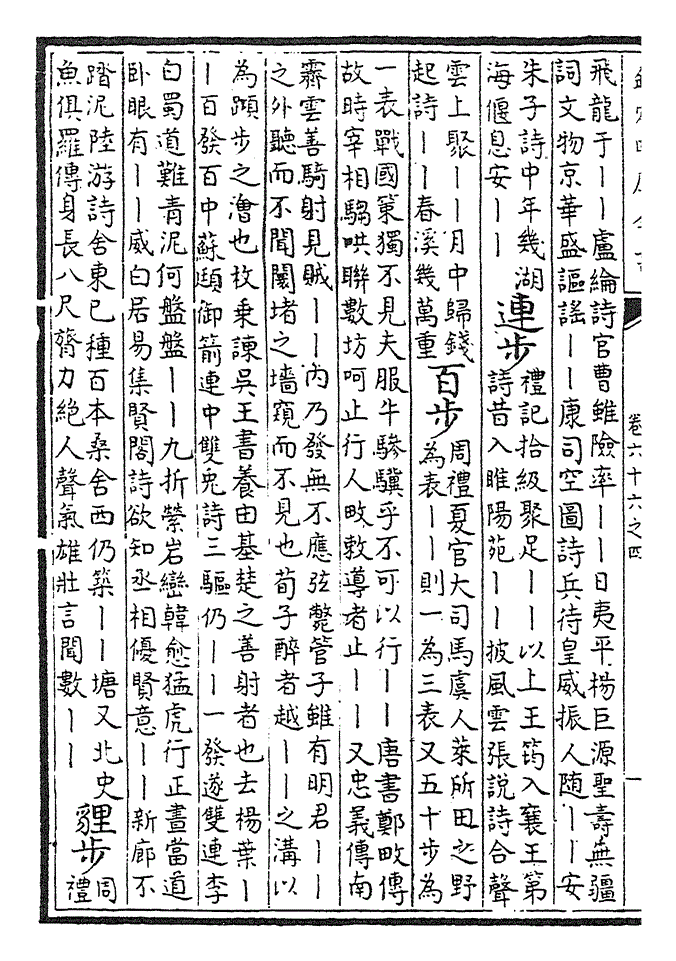 卷六十六之四
一
飛龍于丨丨盧綸詩官曹雖險率丨丨日夷平楊巨源聖壽無疆
詞文物京華盛謳謠丨丨康司空圖詩兵待皇威振人随丨丨安
朱子詩中年幾湖
海偃息安丨丨
連步
禮記拾級聚足丨丨以上王筠入襄王第
詩昔入睢陽苑丨丨披風雲張説詩合聲
雲上聚丨丨月中歸錢
起詩丨丨春溪幾萬重
百步
周禮夏官大司馬虞人萊所田之野
為表丨丨則一為三表又五十步為
一表戰國策獨不見夫服牛驂驥乎不可以行丨丨唐書鄭畋傳
故時宰相騶哄聯數坊呵止行人畋敕導者止丨丨又忠義傳南
霽雲善騎射見賊丨丨内乃發無不應弦斃管子雖有明君丨丨
之外聽而不聞闌堵之墻窺而不見也荀子醉者越丨丨之溝以
為蹞步之澮也枚乗諫吳王書養由基楚之善射者也去楊葉丨
丨百發百中蘇頲御箭連中雙兎詩三驅仍丨丨一發遂雙連李
白蜀道難青泥何盤盤丨丨九折縈岩巒韓愈猛虎行正晝當道
卧眼有丨丨威白居易集賢閣詩欲知丞相優賢意丨丨新廊不
踏泥陸游詩舍東已種百本桑舍西仍築丨丨塘又北史
魚俱羅傳身長八尺膂力絶人聲氣雄壯言聞數丨丨
貍步
周
禮